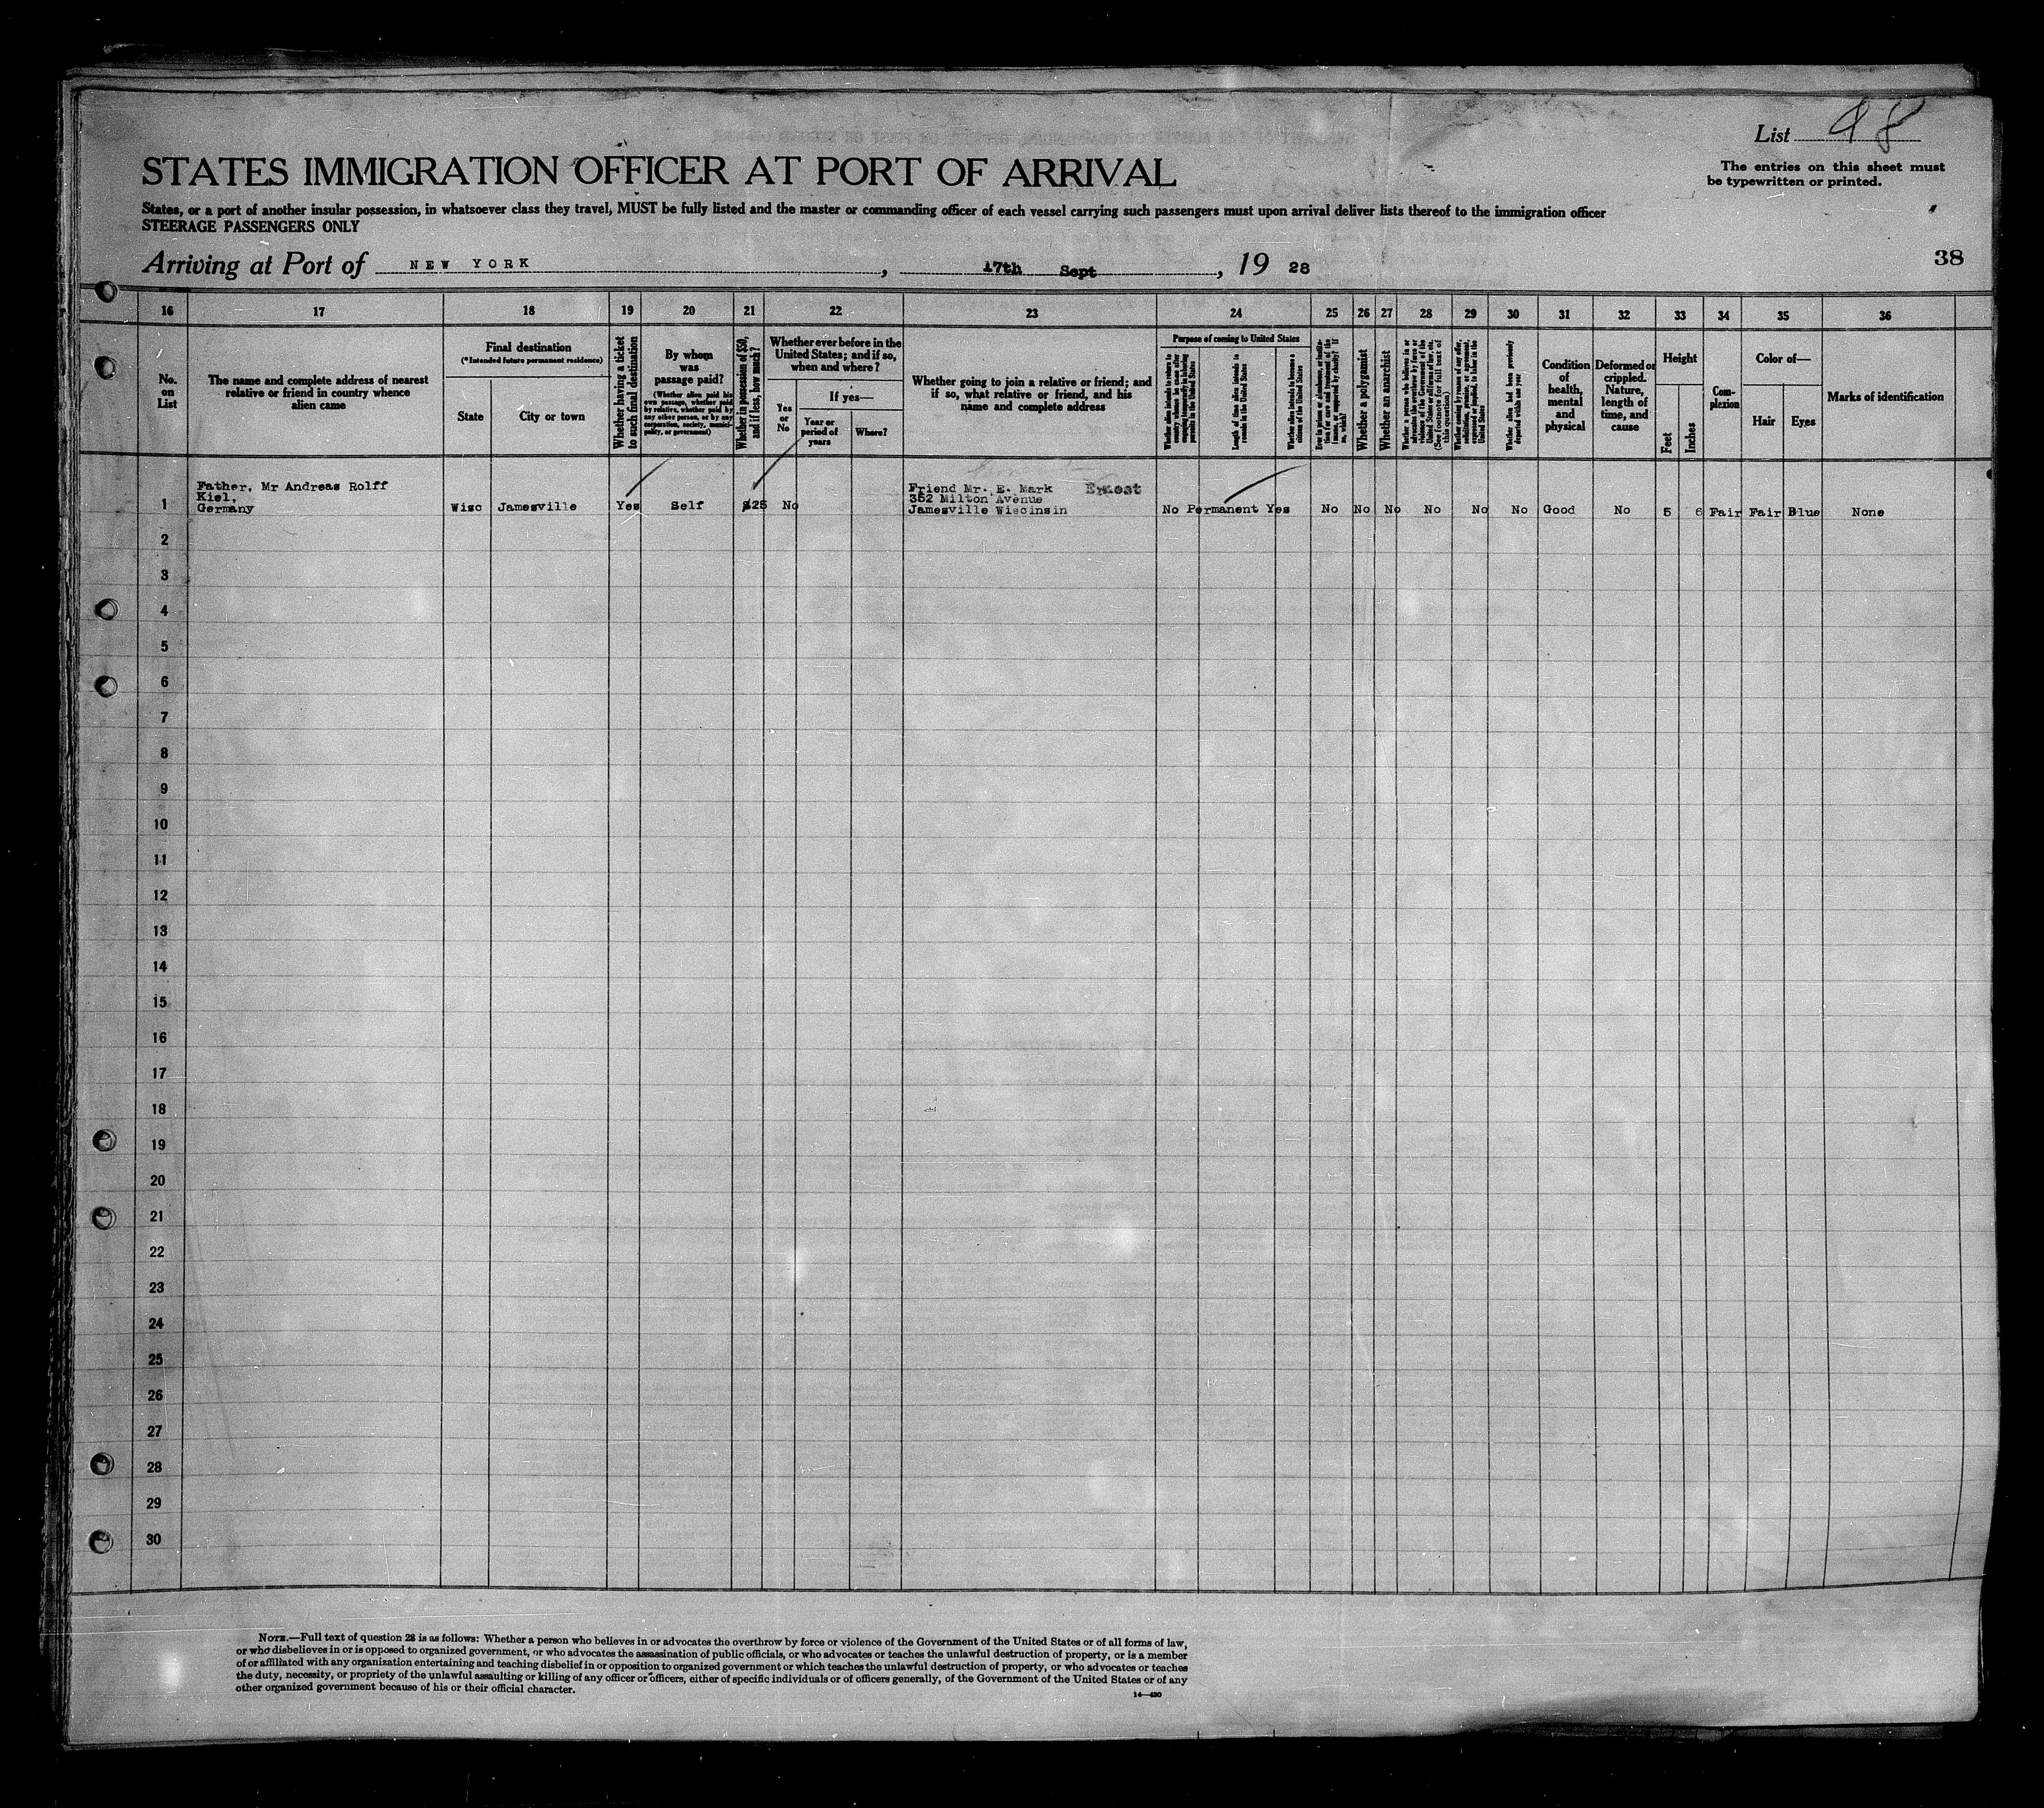 List 48
The entries on this sheet must
be typewritten or printed.
STATES IMMIGRATION OFFICER AT PORT OF ARRIVAL
States, or a port of another insular possession, in whatsoever class they travel, MUST be fully listed and the master or commanding officer of each vessel carrying such passengers must upon arrival deliver lists thereof to the immigration officer
STEERAGE PASSENGERS ONLY
Arriving at Port of NEW YORK, 17th Sept, 19 28
38
16 17 18 19 20 21 22 23 24 25 26 27 28 29 30 31 32 33 34 35 36
No.
on
List
The name and complete address of nearest
relative or friend in country whence
alien came
Final destination
(*Intended future permanent residence)
State
City or town
Whether having a ticket
to such final destination
By whom
was
passage paid?
(Whether alien paid his
own passage, whether paid
by relative, whether paid by
any other person, or by any
corporation, society, munici-
pality, or government)
Whether in possession of $50,
and if less, how much?
Whether ever before in the
United States; and if so,
when and where?
Yes
or
No
If yes—
Year or
period of
years
Where?
Whether going to join a relative or friend; and
if so, what relative or friend, and his
name and complete address
Purpose of coming to United States
Whether alien intends to return to
country whence he came after
engaging temporarily in laboring
pursuits in the United States
Length of time alien intends to
remain in the United States
Whether alien intends to become a
citizen of the United States
Ever in prison or almshouse, or institu-
tion for care and treatment of the
insane, or supported by charity? If
so, which?
Whether a polygamist
Whether an anarchist
Whether a person who believes in or
advocates the overthrow by force or
violence of the Government of the
United States or all forms of law, etc.
(See footnote for full text of
this question)
Whether coming by reason of any offer,
solicitation, promise, or agreement,
expressed or implied, to labor in the
United States
Whether alien had been previously
deported within one year
Condition
of
health,
mental
and
physical
Deformed or
crippled.
Nature,
length of
time, and
cause
Height
Feet
Inches
Com-
plexion
Color of—
Hair
Eyes
Marks of identification
Father, Mr Andreas Rolff
Kiel,
Germany
1 Wisc Jamesville Yes Self $25 No
Friend Mr. E. Mark Ernest
352 Milton Avenue
Jamesville Wiscinsin
No Permanent Yes No No No No No No Good No 5 6 Fair Fair Blue None
2
3
4
5
6
7
8
9
10
11
12
13
14
15
16
17
18
19
20
21
22
23
24
25
26
27
28
29
30
NOTE.—Full text of question 28 is as follows: Whether a person who believes in or advocates the overthrow by force or violence of the Government of the United States or of all forms of law,
or who disbelieves in or is opposed to organized government, or who advocates the assassination of public officials, or who advocates or teaches the unlawful destruction of property, or is a member
of or affiliated with any organization entertaining and teaching disbelief in or opposition to organized government or which teaches the unlawful destruction of property, or who advocates or teaches
the duty, necessity, or propriety of the unlawful assaulting or killing of any officer or officers, either of specific individuals or of officers generally, of the Government of the United States or of any
other organized government because of his or their official character.
14—430